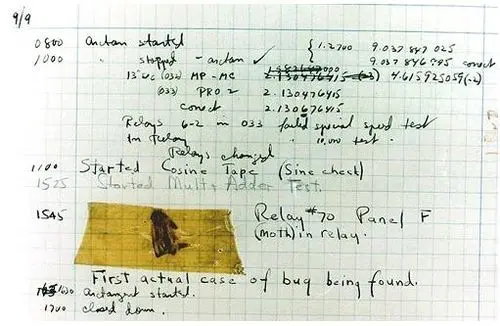 9/9
0800 antan started
1000 " stopped - antan ✓ { 1.2700 9.037 847 025
9.037 846 995 conect
13"uc (032) MP - MC 2.130476415 (-3) 4.615925059(-2)
(033) PRO 2 2.130476415
conect 2.130676415
Relays 6-2 in 033 failed special speed test
In Relay " 10.000 test.
Relays changed
1100 Started Cosine Tape (Sine check)
1525 Started Mult + Adder Test.
1545 Relay #70 Panel F
(moth) in relay.
First actual case of bug being found.
1630 antangent started.
1700 closed down.